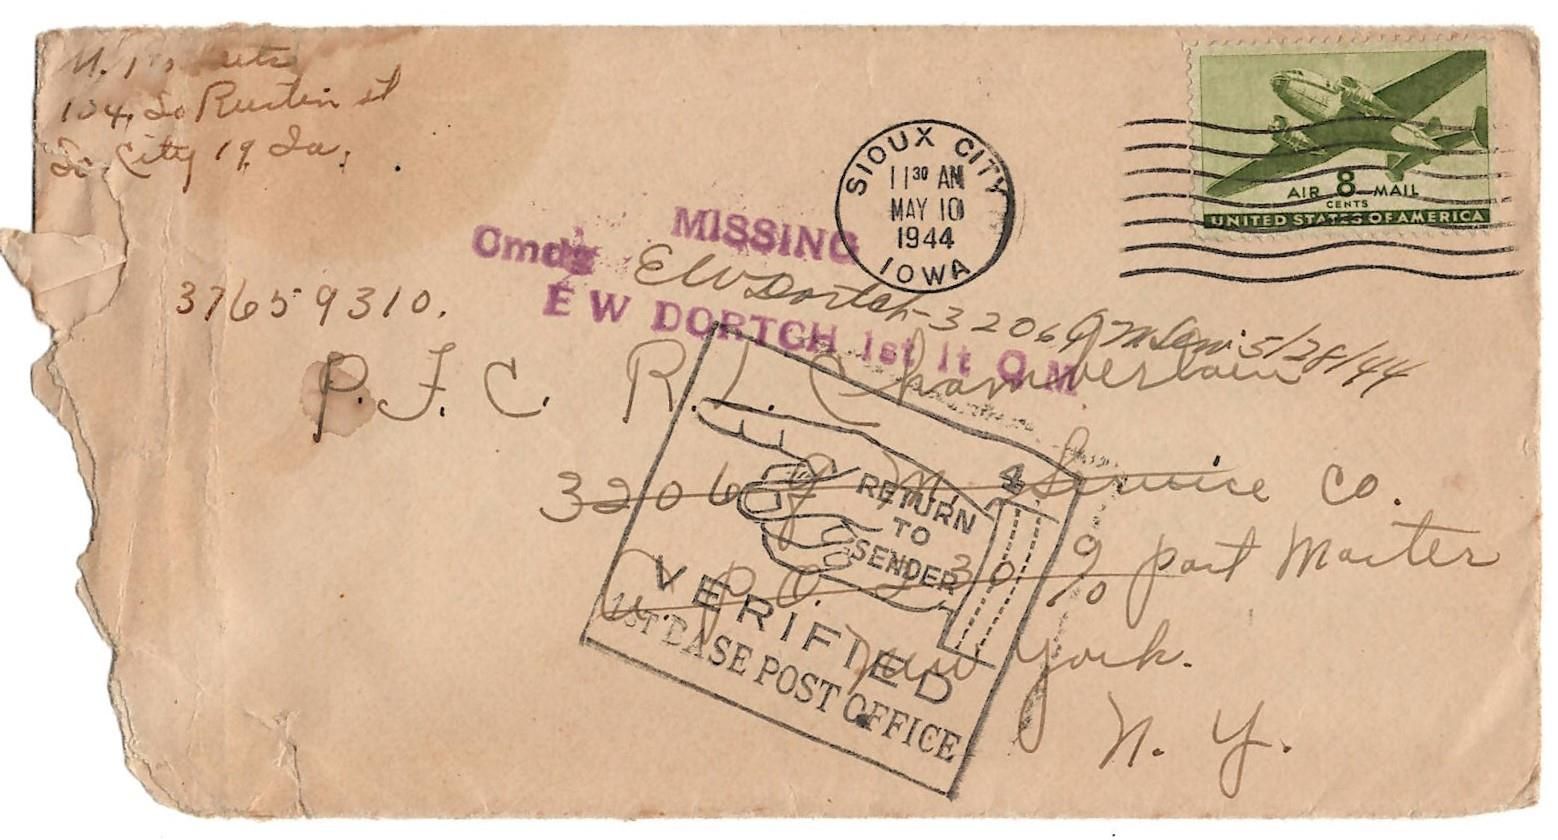 104, So Rustin st
So City 19, Ia.
SIOUX CITY
11 30 AM
MAY 10
1944
IOWA
AIR 8 MAIL
CENTS
UNITED STATES OF AMERICA
MISSING
Cmdg EW Dortch - 3206 QM Serv. 5/28/44
E W DORTCH 1st lt Q M
37659310.
P.F.C. R. L. Chamberlain
3206 Q. M. Service Co.
A. P. O. 230 c/o post Master
New York.
N. Y.
4
RETURN
TO
SENDER
VERIFIED
1ST BASE POST OFFICE